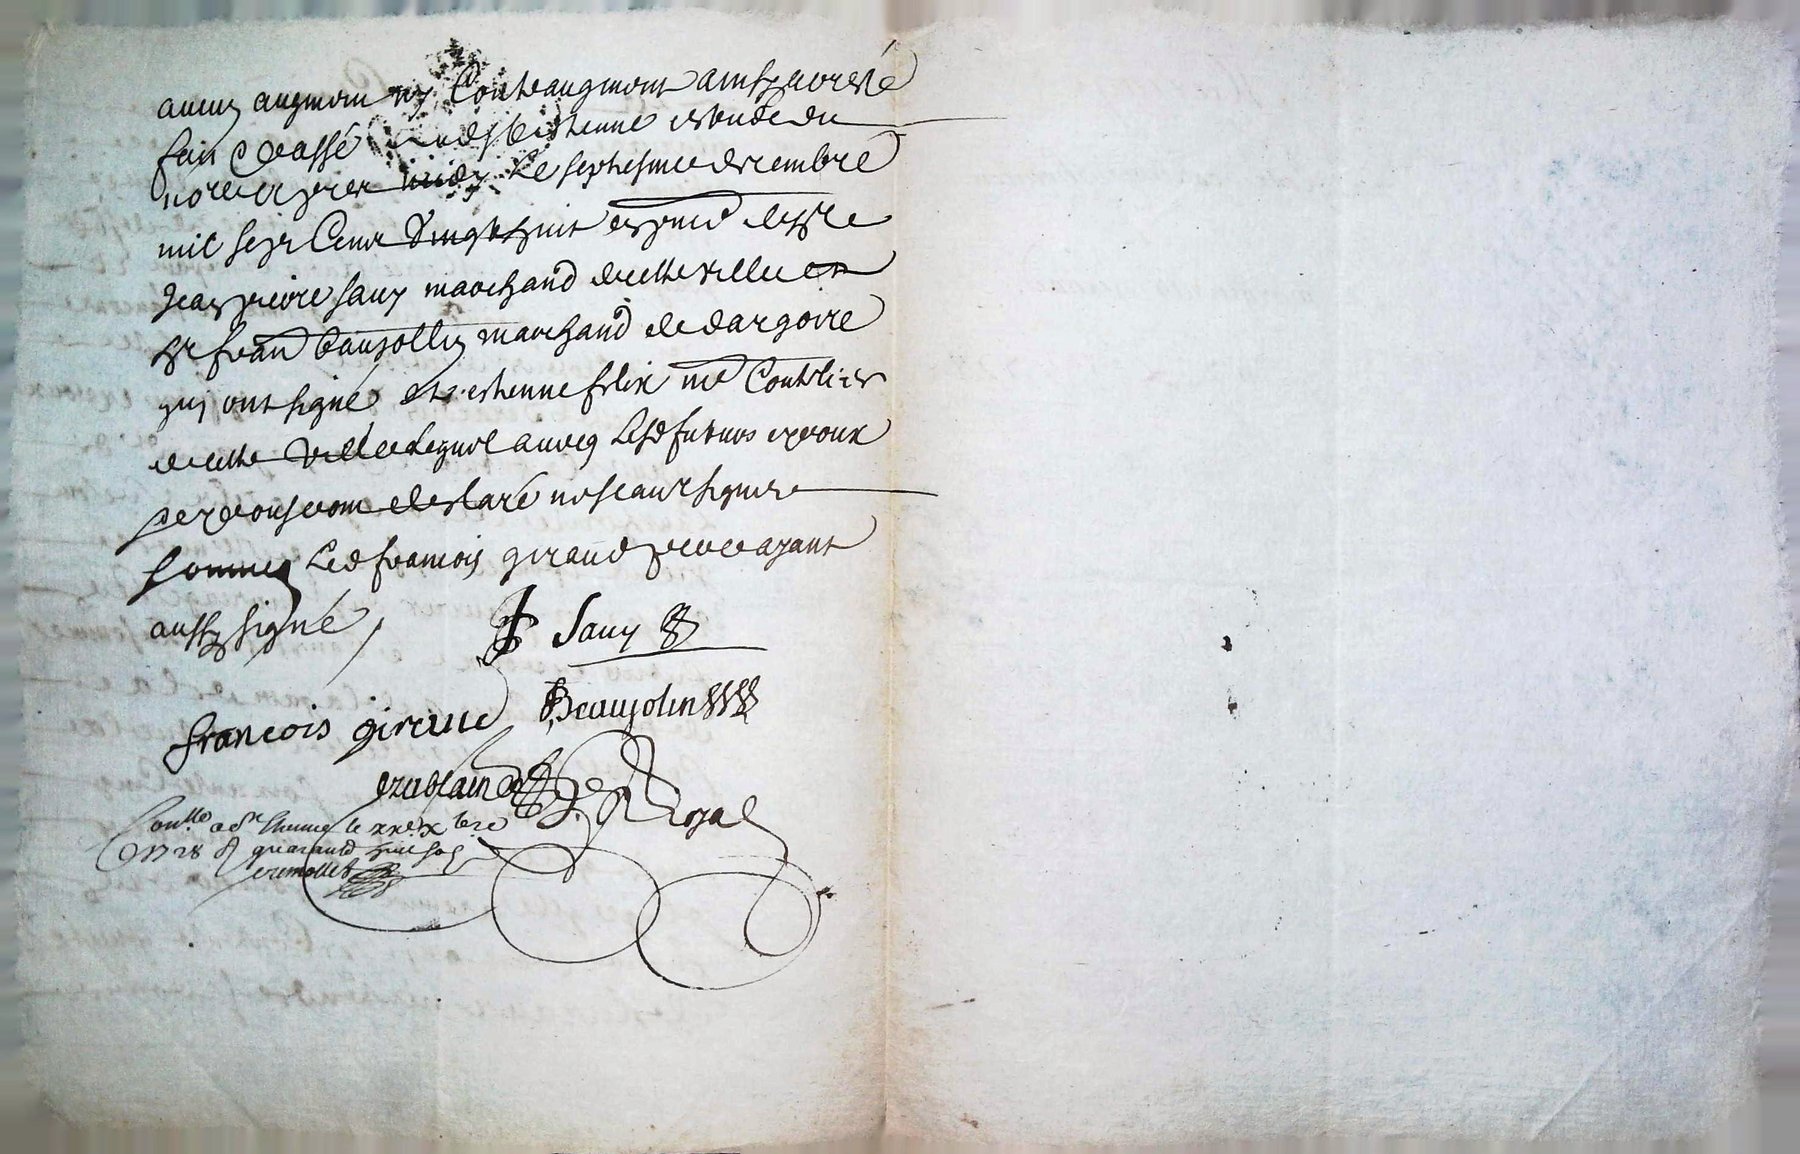 aucun augment ny Contreaugment ainsy accordé
fait & passé aud st estienne estude du
no.re et apres midy Le septiesme decembre
mil sept Cent vingt huit es presence de sr
Jean pierre Sauy marchand de cette ville et
sr fran Baujollin marchand de dargoire
quy ont signé et estienne felix me Coutelier
de cette ville de requis avecq Lesd futurs epoux
declaré ne scavoir signer
sommes Led francois giraud pere ayant
aussy signé
Sauy
francois giraud Beaujolin
Royal
Con.llé a st Etienne le xx.bre
1728